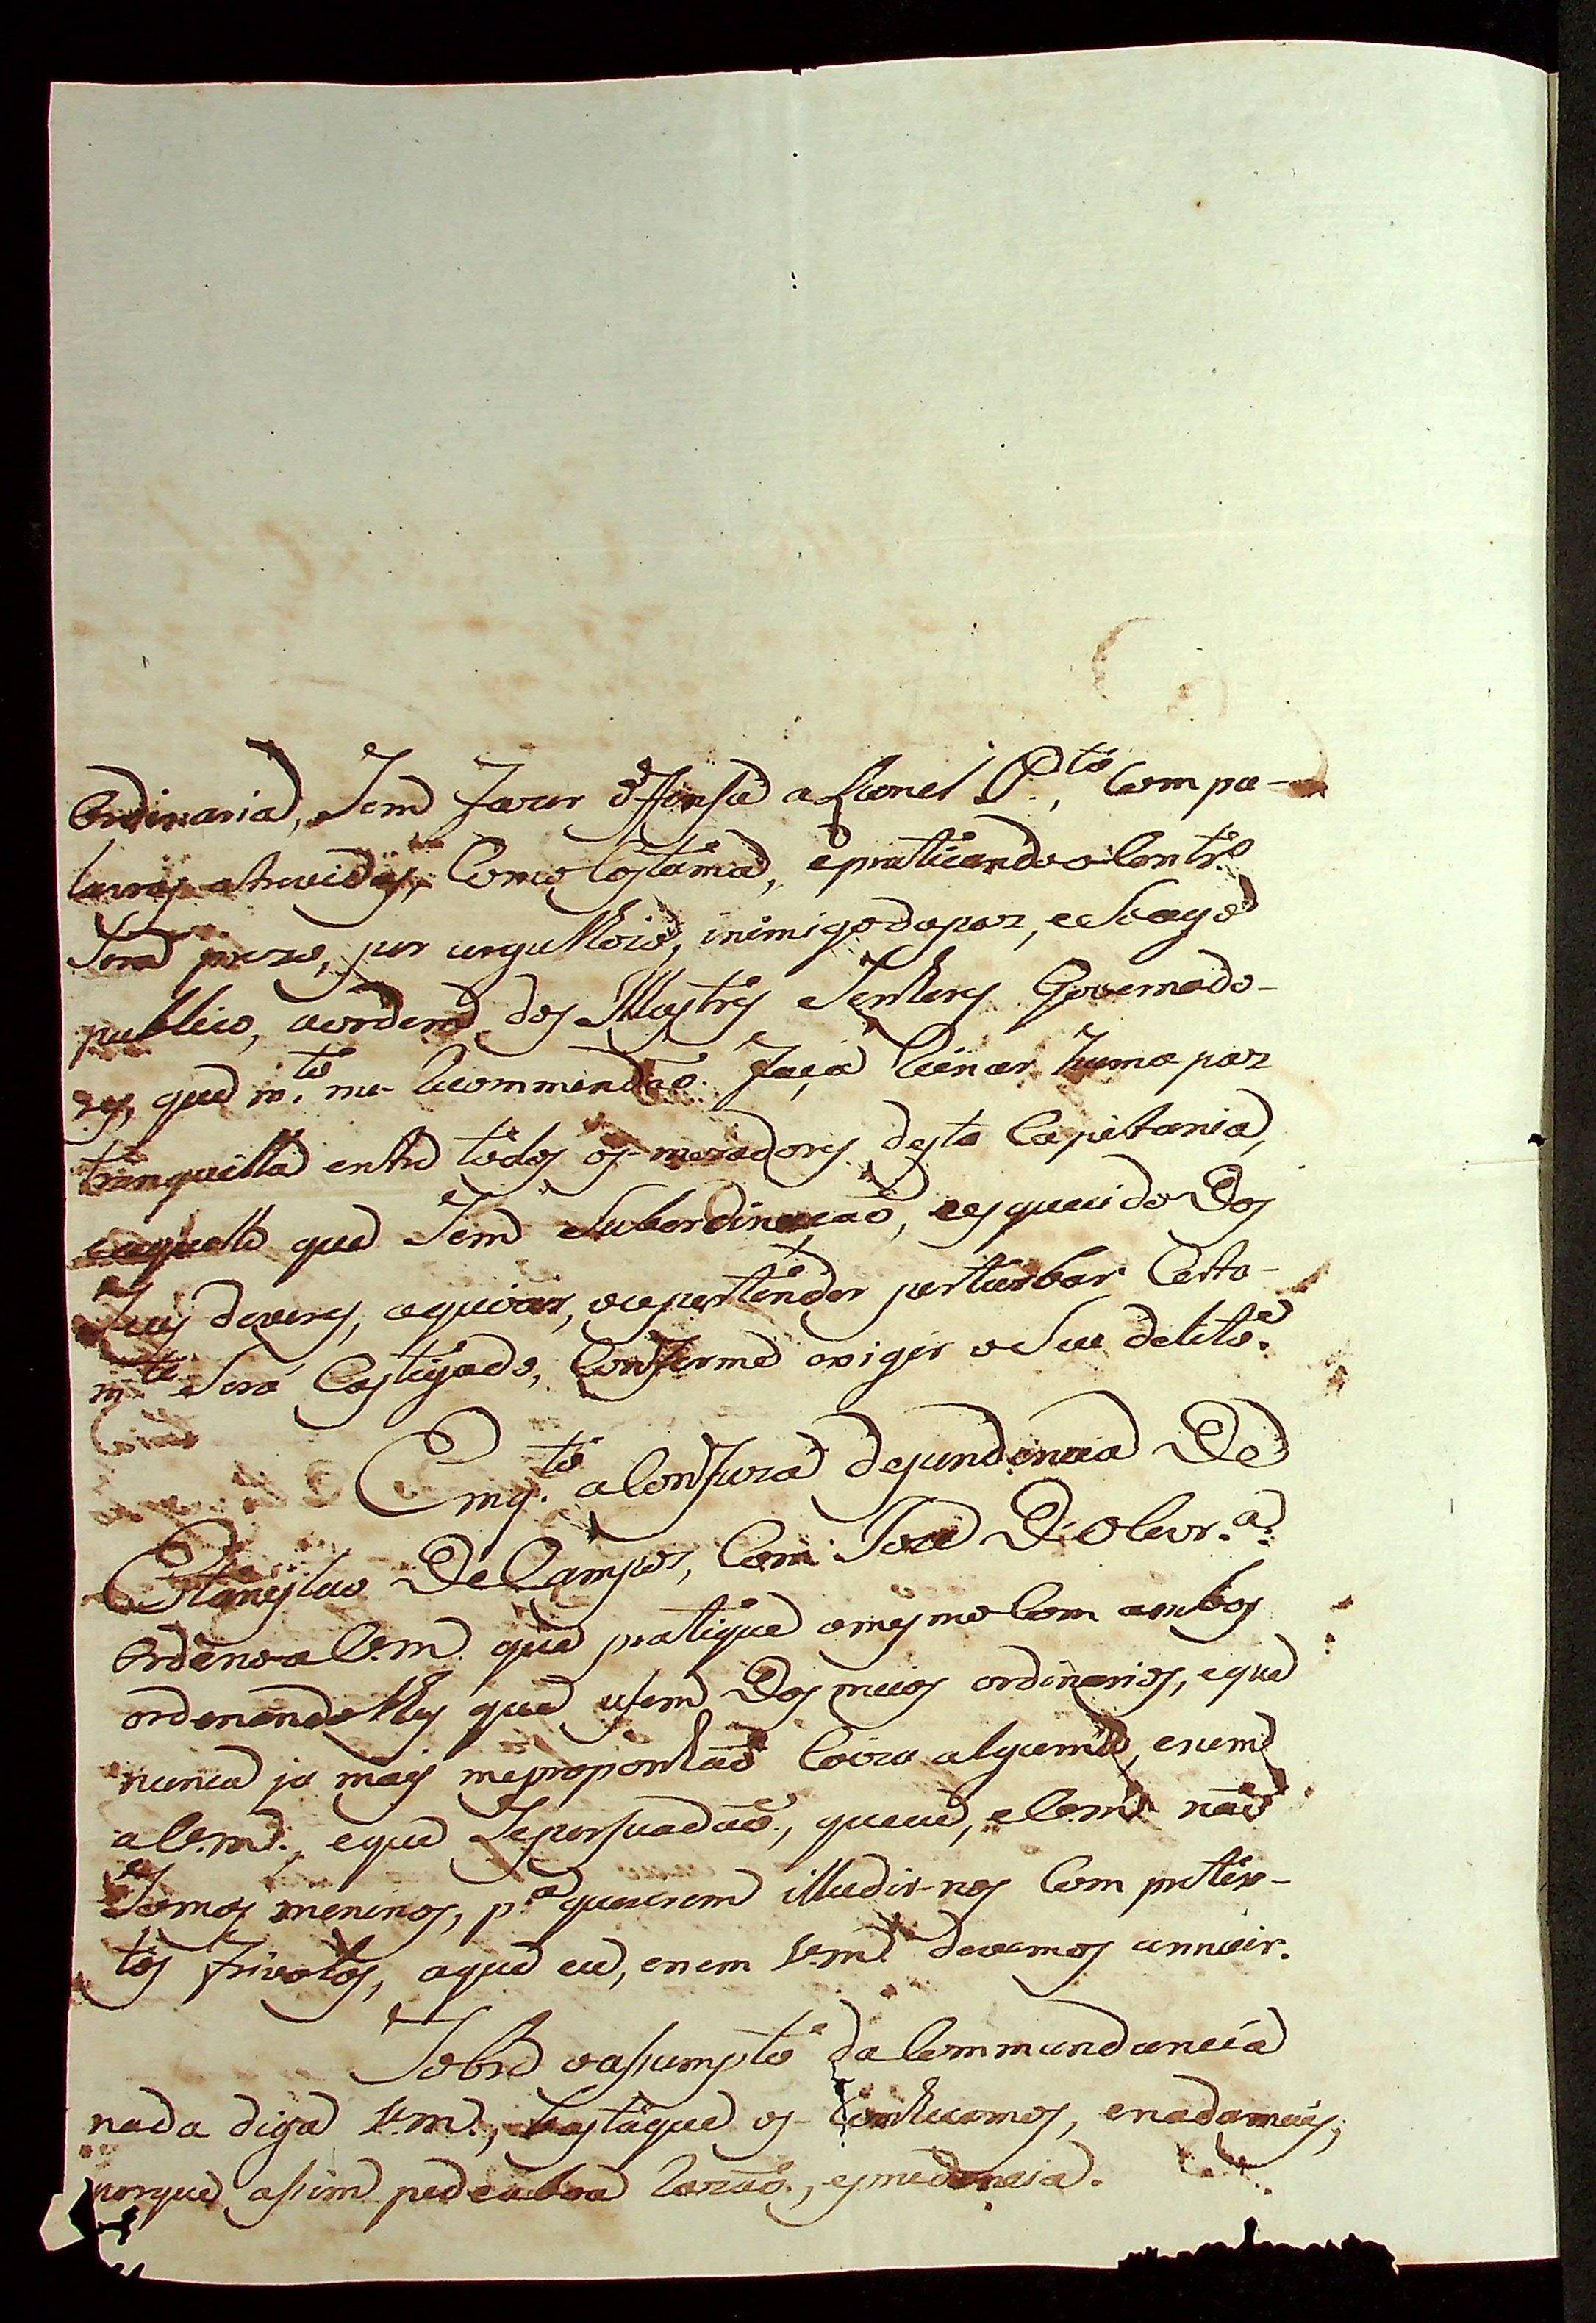 Ordinaria, Sem fazer offensa a Leonel P.to, Com pa-
lavras atrevidas, Como Costuma, e praticando o Contr.o
Sera prezo, por urgulhozo, inimigo da paz, e Socego
publico, a ordem dos Illustres Senhores Governado-
res, que m.to me recommendaõ. faça Reinar huma paz
tranquilla entre todos os moradores desta Capitania,
e aquelle que Sem Subordinaçaõ, e esquecido Dos
Seus deveres, a quizer, ou pertender perturbar Certa-
m.te Será Castigado, Conforme exigir o Seu delito.
Emq.to a Confuza dependencia De
Estanesláo De Campos, Com Joze D'Olivr.a
Ordeno a V.m. que pratique o mesmo Com ambos
ordenando lhes que uzem Dos meios ordinarios, e que
nunca ja mais me proponhaõ Coiza alguma, e nem
a V.m., e que Se persuadaõ, que eu, e V.m. naõ
Somos meninos, p.a quererem illudir-nos Com pretex-
tos frivolos, a que eu, e nem V.m. devemos annuir.
Sobre o assumpto da Commandancia
nada diga V.m., basta que os Conheçamos, e nada mais,
porque assim pede a boa razaõ, e prudencia.